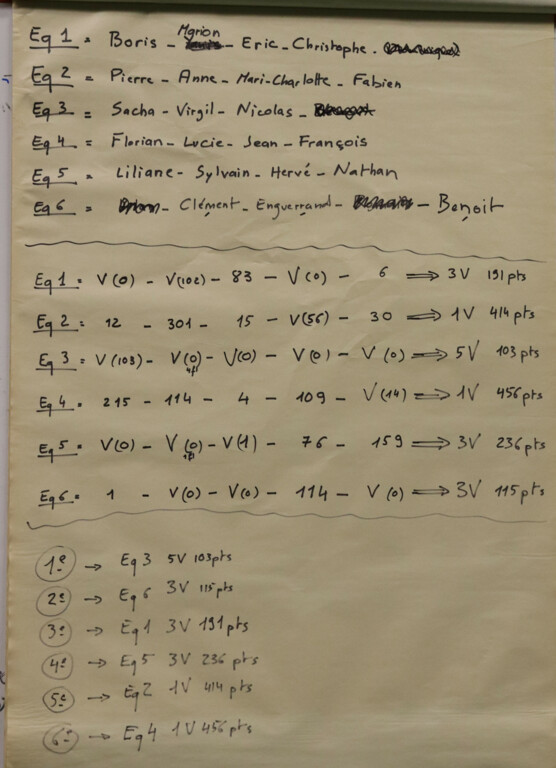 Eq 1 = Boris - Marion - Eric - Christophe.
Eq 2 = Pierre - Anne - Mari-Charlotte - Fabien
Eq 3 = Sacha - Virgil - Nicolas -
Eq 4 = Florian - Lucie - Jean - François
Eq 5 = Liliane - Sylvain - Hervé - Nathan
Eq 6 = - Clément - Enguerrand - - Benoit
Eq 1 = V(0) - V(102) - 83 - V(0) - 6 ⇒ 3V 191 pts
Eq 2 = 12 - 301 - 15 - V(56) - 30 ⇒ 1V 414 pts
Eq 3 = V(103) - V(0) - V(0) - V(0) - V(0) ⇒ 5V 103 pts
Eq 4 = 215 - 114 - 4 - 109 - V(14) ⇒ 1V 456 pts
Eq 5 = V(0) - V(0) - V(1) - 76 - 159 ⇒ 3V 236 pts
Eq 6 = 1 - V(0) - V(0) - 114 - V(0) ⇒ 3V 115 pts
1e → Eq 3 5V 103 pts
2e → Eq 6 3V 115 pts
3e → Eq 1 3V 191 pts
4e → Eq 5 3V 236 pts
5e → Eq 2 1V 414 pts
6e → Eq 4 1V 456 pts